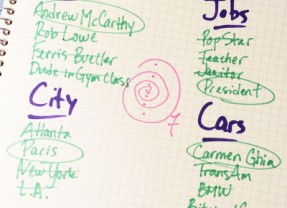 Andrew McCarthy
Rob Lowe
Ferris Bueller
Dude in Gym Class
City
Atlanta
Paris
New York
L.A.
7
Jobs
PopStar
Teacher
Janitor
President
Cars
Carmen Ghia
TransAm
BMW